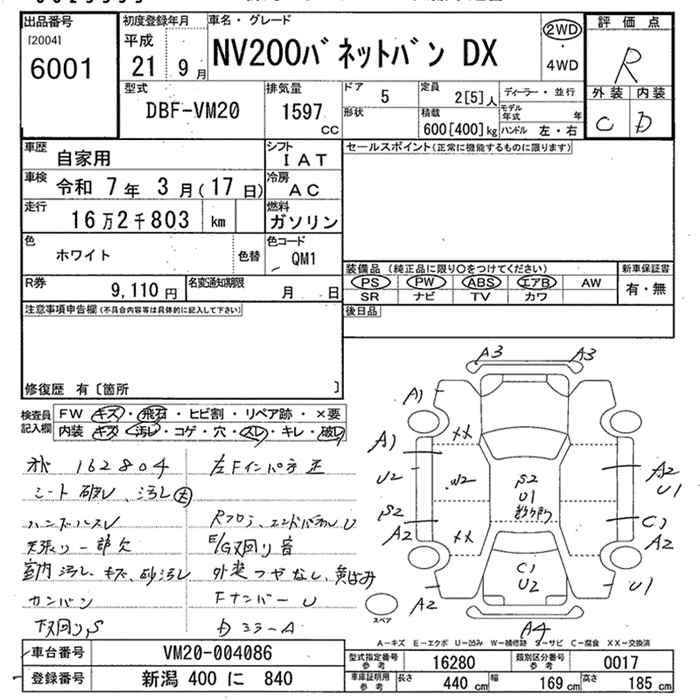 出品番号
[2004]
6001
初度登録年月
平成
21 9 月
車名・グレード
NV200バネットバン DX
2WD
・
4WD
評価点
R
外装 内装
C D
型式
DBF-VM20
排気量
1597
CC
ドア
5
形状
定員
2[5]人
積載
600[400]kg
ディーラー・並行
モデル年式 年
ハンドル 左・右
車歴
自家用
シフト
IAT
車検
令和 7 年 3 月(17 日)
冷房
AC
走行
16 万 2 千 803 km
燃料
ガソリン
色
ホワイト
色替
色コード
QM1
R券
9,110 円
名変通知期限
月 日
セールスポイント(正常に機能するものに限ります)
装備品 (純正品に限り○をつけてください)
PS PW ABS エアB AW
SR ナビ TV カワ
新車保証書
有・無
後日品
注意事項申告欄(不具合内容等は具体的に記入して下さい)
修復歴 有〔箇所 〕
検査員記入欄
FW キズ・飛石・ヒビ割・リペア跡・×要
内装 キズ・汚レ・コゲ・穴・スレ・キレ・破レ
162804
左Fインパネ
シート 破レ、汚レ 大
ハンドルスレ
Rフロア、エンドパネル U
天張リ一部欠
E/G 下回リ 音
室内 汚レ、キズ、砂汚レ
外装 つやなし、黄ばみ
カンバン
Fナンバー U
下回リS
Dミラー A
A3 A3
A1
A1 XX A2
U2 W2 S2 U1
U1
S2 C1
A2 XX A2
C1
U2
A2 U1
A4
スペア
A－キズ E－エクボ U－凹み W－補修跡 S－サビ C－腐食 XX－交換済
車台番号
VM20-004086
登録番号
新潟 400 に 840
型式指定番号
参考
16280
類別区分番号
参考
0017
車庫証明用
参考
長さ 440 cm 幅 169 cm 高さ 185 cm